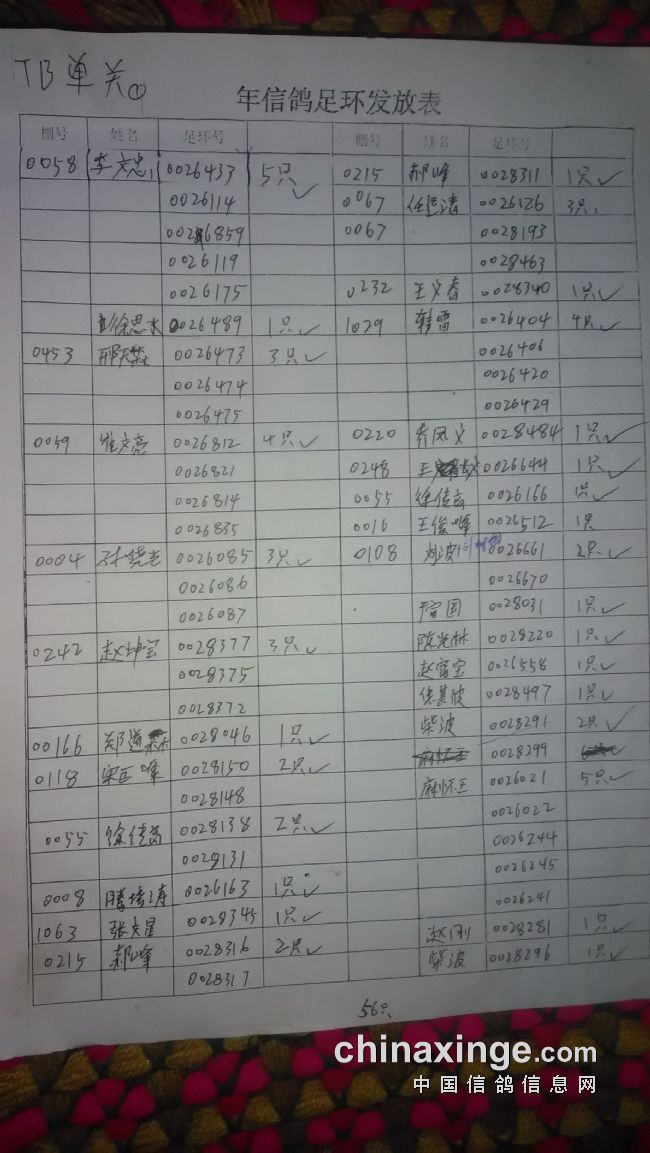 TB单关①
年信鸽足环发放表
棚号 姓名 足环号 棚号 姓名 足环号
0058 李文忠 0026433 5只✓ 0215 郝峰 0028311 1只✓
0026114 0067 任 涛 0026126 3只
0026859 0067 0028193
0026119 0028463
0026175 0232 王文春 0028340 1只✓
徐恩水 0026489 1只✓ 1029 韩雷 0026404 4只
0453 邢 0026473 3只✓ 0026406
0026474 0026420
0026475 0026429
0059 崔文亮 0026812 4只✓ 0220 乔凤义 0028484 1只✓
0026821 0248 王 0026644 1只✓
0026814 0055 徐传高 0026166 1只✓
0026835 0016 王俊峰 0026512 1只
0004 孙晓光 0026085 3只✓ 0108 波 0026661 2只✓
0026086 0026670
0026087 国 0028031 1只✓
0242 赵坤宝 0028377 3只✓ 陈光林 0028220 1只✓
0028375 赵富宝 0026558 1只✓
0028372 佟其波 0028497 1只✓
00166 郑道森 0028046 1只✓ 柴波 0028291 2只✓
0118 宋 峰 0028150 2只✓ 0028299
0028148 麻怀玉 0026021 5只✓
0055 徐传高 0028138 2只✓ 0026022
0028131 0026244
0008 腾培涛 0026163 1只✓ 0026245
1063 张克星 0028345 1只✓ 0026241
0215 郝峰 0028316 2只✓ 赵刚 0028281 1只✓
0028317 柴波 0028296 1只✓
56只
chinaxinge.com
中国信鸽信息网